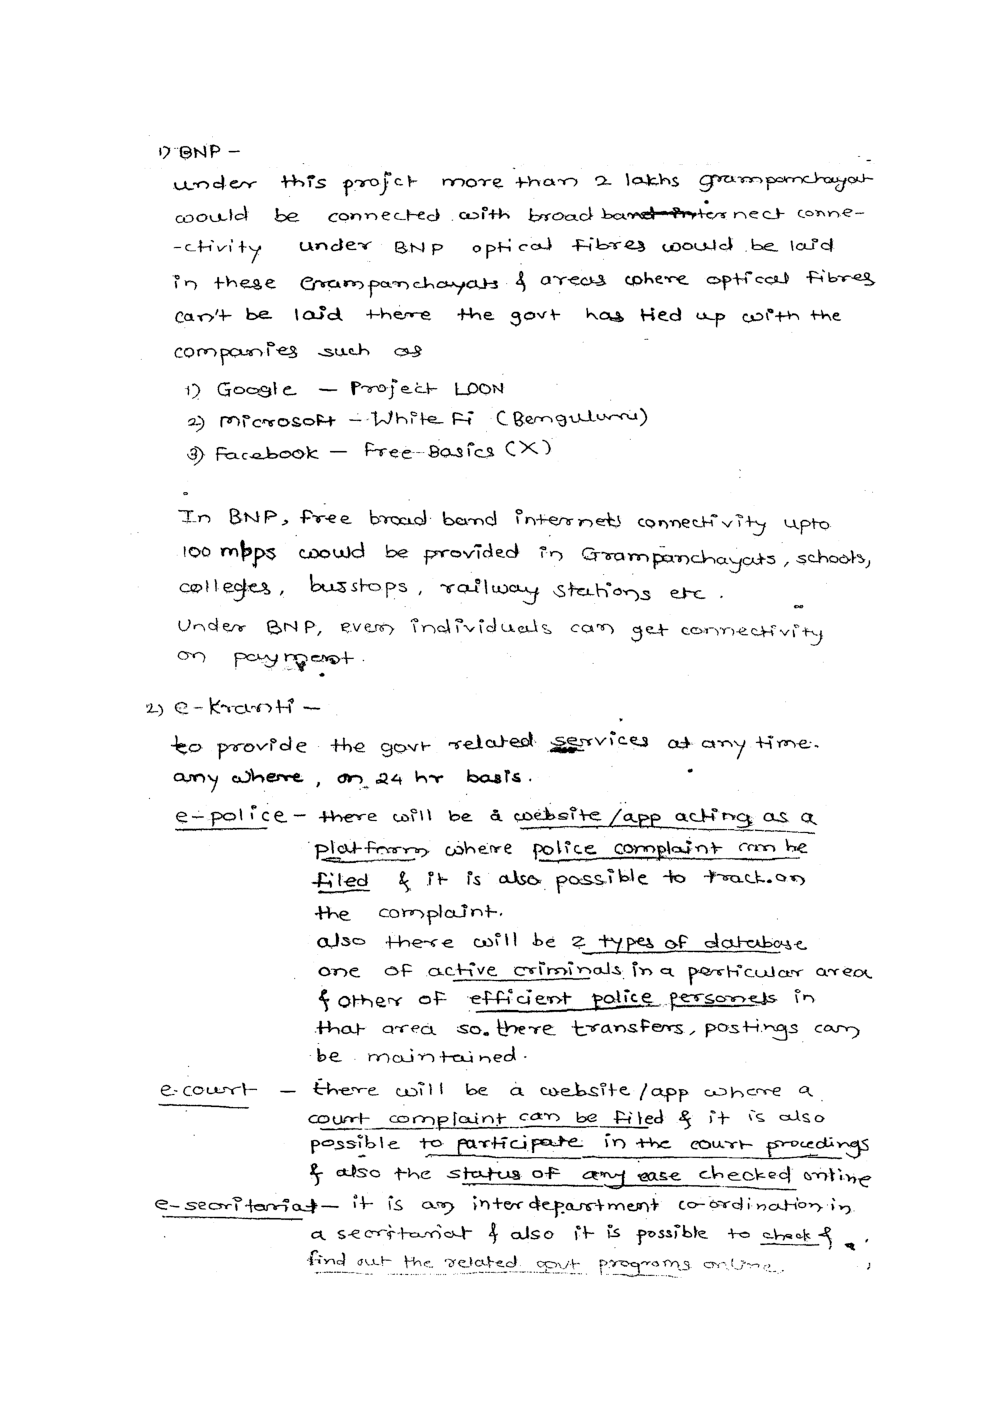 1) BNP –
under this projct more than 2 lakhs grampanchayat
would be connected with broad band internect conne-
-ctivity under BNP optical fibres would be laid
in these Grampanchayats & areas where optical fibres
can't be laid there the govt has tied up with the
companies such as
1) Google – Project LOON
2) Microsoft – White Fi (Benguluru)
3) Facebook – Free Basics (X)
In BNP, free broad band internet connectivity upto
100 mbps would be provided in Grampanchayats, schools,
colleges, busstops, railway stations etc.
Under BNP, even individuals can get connectivity
on payment.
2) e-Kranti –
to provide the govt related services at any time.
any where, on 24 hr basis.
e-police – there will be a website/app acting as a
platform where police complaint can be
filed & it is also possible to track on
the complaint.
also there will be 2 types of database
one of active criminals in a perticular area
& other of efficient police personels in
that area so. there transfers, postings can
be maintained.
e-court – there will be a website/app where a
court complaint can be filed & it is also
possible to participate in the court procedings
& also the status of any case checked online
e-secritariat – it is an interdepartment co-ordination in
a secritariat & also it is possible to check &
find out the related govt programs online.